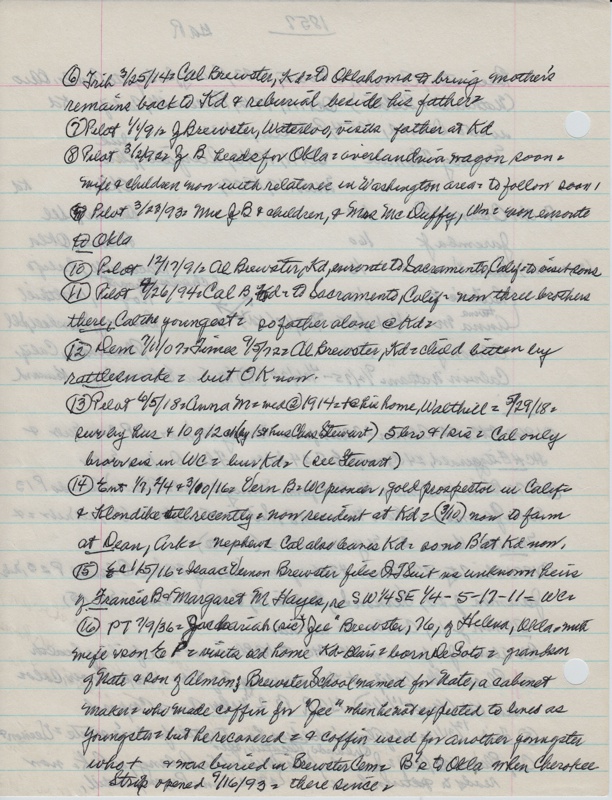 ⑥ Trib 3/25/14 = Cal Brewster, Kd = to Oklahoma to bring mother's
remains back to Kd & reburial beside his father =
⑦ Pilot 1/4/91 = J Brewster, Waterloo, visits father at Kd
⑧ Pilot 3/2/92 = J B heads for Okla = overland via wagon soon =
wife & children now with relatives in Washington area = to follow soon
Pilot 3/23/93 = Mrs J B & children, & Mrs McDuffy, = enroute
to Okla
⑩ Pilot 12/17/91 = Al Brewster, Kd, enroute to Sacramento, Calif = to visit sons
⑪ Pilot 4/26/94 = Cal B, Kd = to Sacramento, Calif = now three brothers
there, Cal the youngest = so father alone @ Kd =
⑫ Dem 7/11/07 = Times 9/5/22 = Al Brewster, Kd = child bitten by
rattlesnake = but OK now.
⑬ Pilot 6/5/18 = Anna M = wed @ 1914 = + his home, Walthill = 5/29/18 =
surv by hus & 10 of 12 ch (by 1st hus Chas Stewart) 5 bro & 1 sis = Cal only
bro or sis in WC = bur Kd = (see Stewart)
⑭ Ent 1/7, 2/4 & 3/10/16 = Vern B = WC pioneer, gold prospector in Calif =
& Klondike till recently = now resident at Kd = (3/10) now to farm
at Dean, Ark = nephew Cal also leaves Kd = so no B' at Kd now.
⑮ 1/5/16 = Isaac Vernon Brewster files QT Suit vs unknown heirs
of Francis B & Margaret M Hayes, re SW 1/4 SE 1/4 - 5-17-11 = WC =
⑯ PT 7/9/36 = Zachariah (sic) "Jee" Brewster, 76, of Helena, Okla = with
wife & son E P = visits old home Kd-Blair = born De Soto = grandson
of Nate & son of Almon; Brewster School named for Nate, a cabinet
maker = who made coffin for "Jee" when he not expected to live as
youngster = but he recovered = & coffin used for another youngster
who + & was buried in Brewster Cem = B's to Okla when Cherokee
Strip opened 9/16/93 = there since =